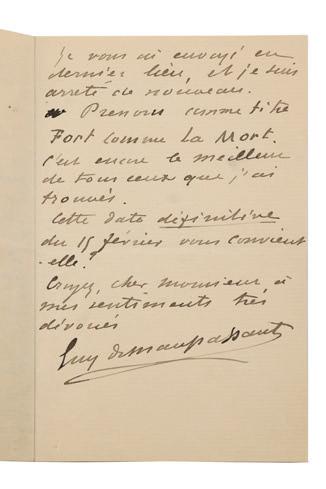 Je vous ai envoyé en
dernier lieu, et je suis
arrêté de nouveau.
Prenons comme titre
Fort comme La Mort.
C'est encore le meilleur
de tous ceux que j'ai
trouvés.
Cette date définitive
du 15 février vous convient
-elle?
Croyez, cher monsieur, à
mes sentiments très
dévoués
Guy de Maupassant